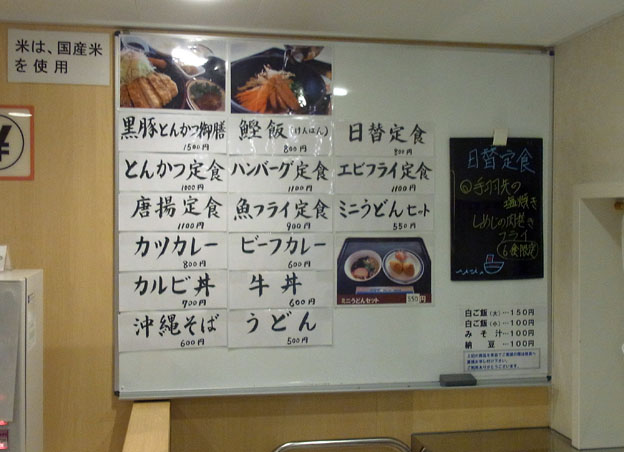 米は、国産米
を使用
¥
黒豚とんかつ御膳
1500円
鰹飯(けんはん)
800円
日替定食
800円
とんかつ定食
1000円
ハンバーグ定食
1100円
エビフライ定食
1100円
唐揚定食
1100円
魚フライ定食
900円
ミニうどんセット
550円
カツカレー
800円
ビーフカレー
600円
カルビ丼
700円
牛丼
600円
ミニうどんセット 550円
沖縄そば
600円
うどん
500円
日替定食
手羽先の
塩焼き
しめじの肉巻き
フライ
6食限定
白ご飯(大)…150円
白ご飯(小)…100円
みそ汁…100円
納豆…100円